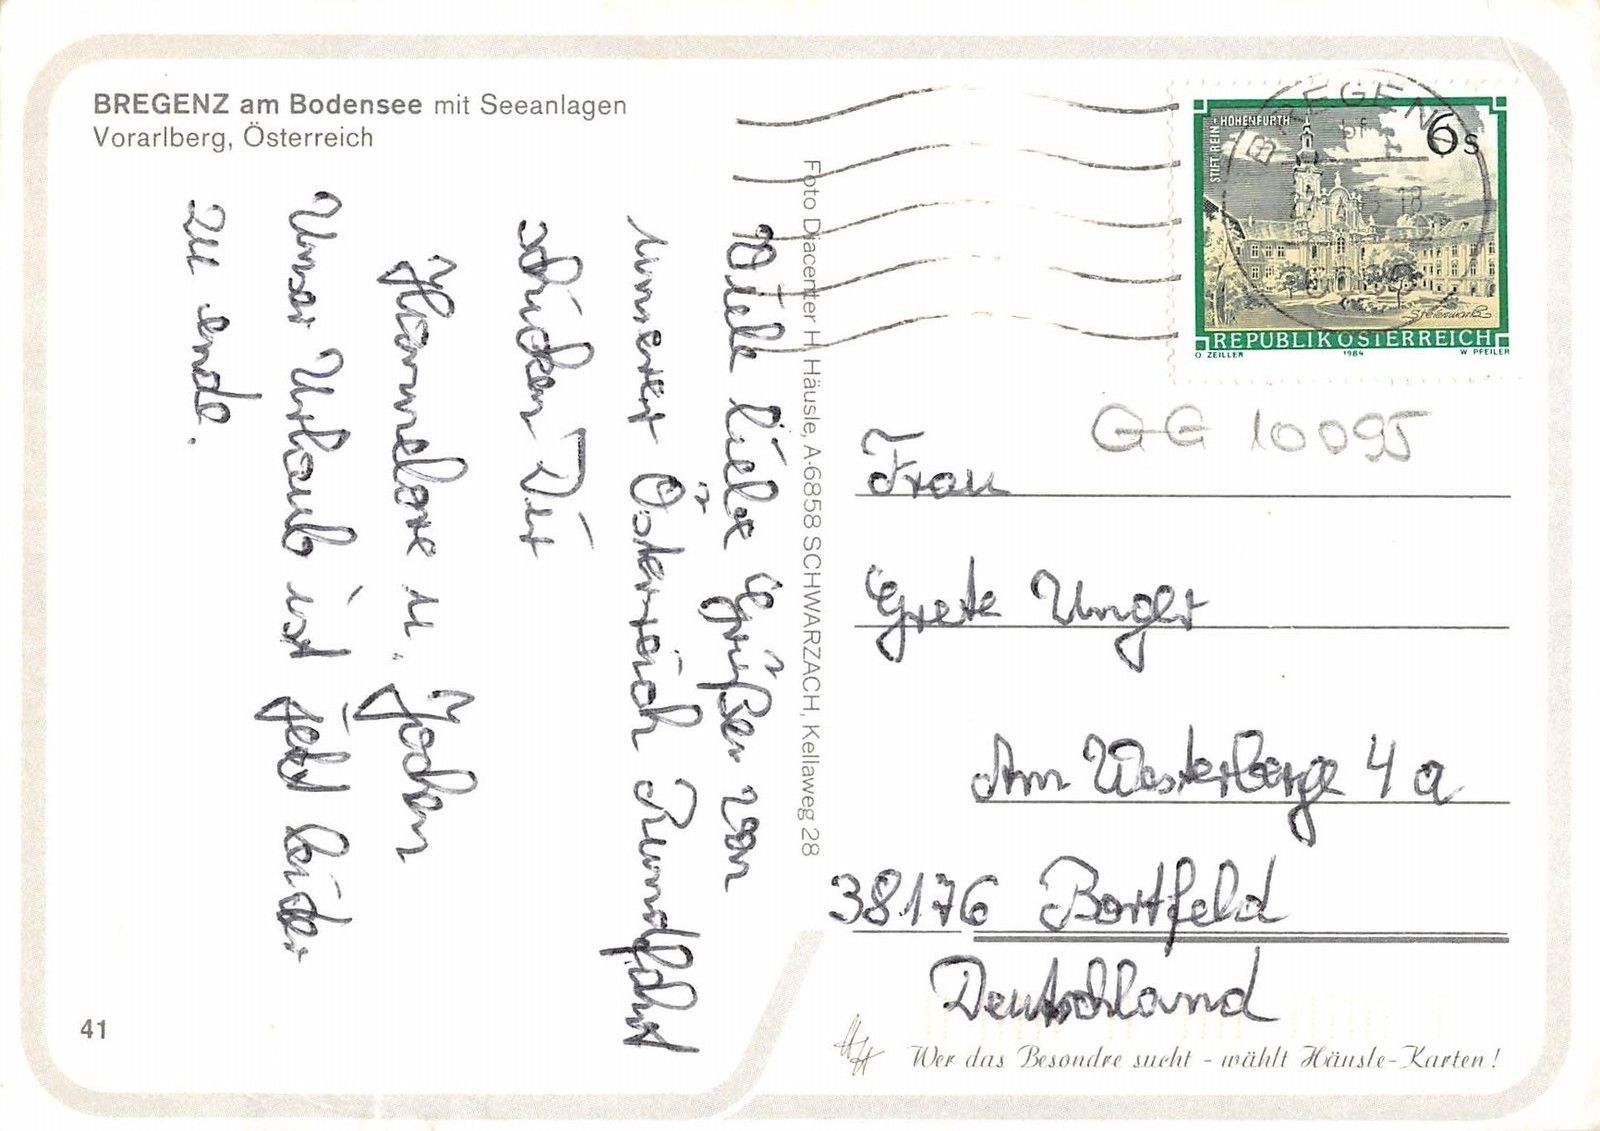 BREGENZ am Bodensee mit Seeanlagen
Vorarlberg, Österreich
Viele liebe Grüße von
unserer Österreich Rundfahrt
schicken Dir
Hannelore u. Jochen
Unser Urlaub ist jetzt leider
zu ende.
Foto Diacenter H. Häusle, A-6858 SCHWARZACH, Kellaweg 28
BREGENZ
18
STIFT REIN-HOHENFURTH
6s
Stefferl
REPUBLIK ÖSTERREICH
O. ZEILLER 1984 W. PFEILER
GG 10095
Frau
Grete Unger
Am Westerberge 4 a
38176 Bortfeld
Deutschland
41
HH
Wer das Besondre sucht - wählt Häusle-Karten!